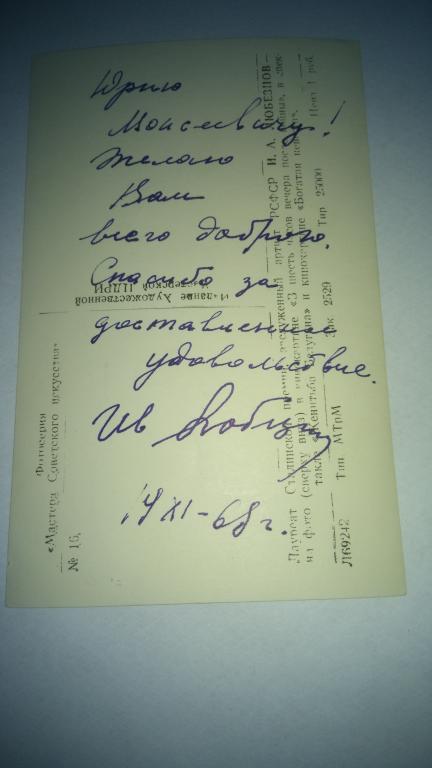 Юрию
Моисеевичу!
Желаю
Вам
всего доброго.
Спасибо за
доставленное
удовольствие.
Ив Любезнов
14 XI-68 г.
Фотосерия
«Мастера Советского искусства»
№ 16.
Издание Художественной
мастерской ЦДРИ
Лауреат Сталинской премии, заслуженный артист РСФСР И. А. ЛЮБЕЗНОВ
на фото (сверху вниз) в кинокартине «В шесть часов вечера после войны», в спек-
такле «Женитьба Белугина» и кинокартине «Богатая
Л69242 Тип. МТрМ Зак 2529 Тир 25000 Цена 1 руб.